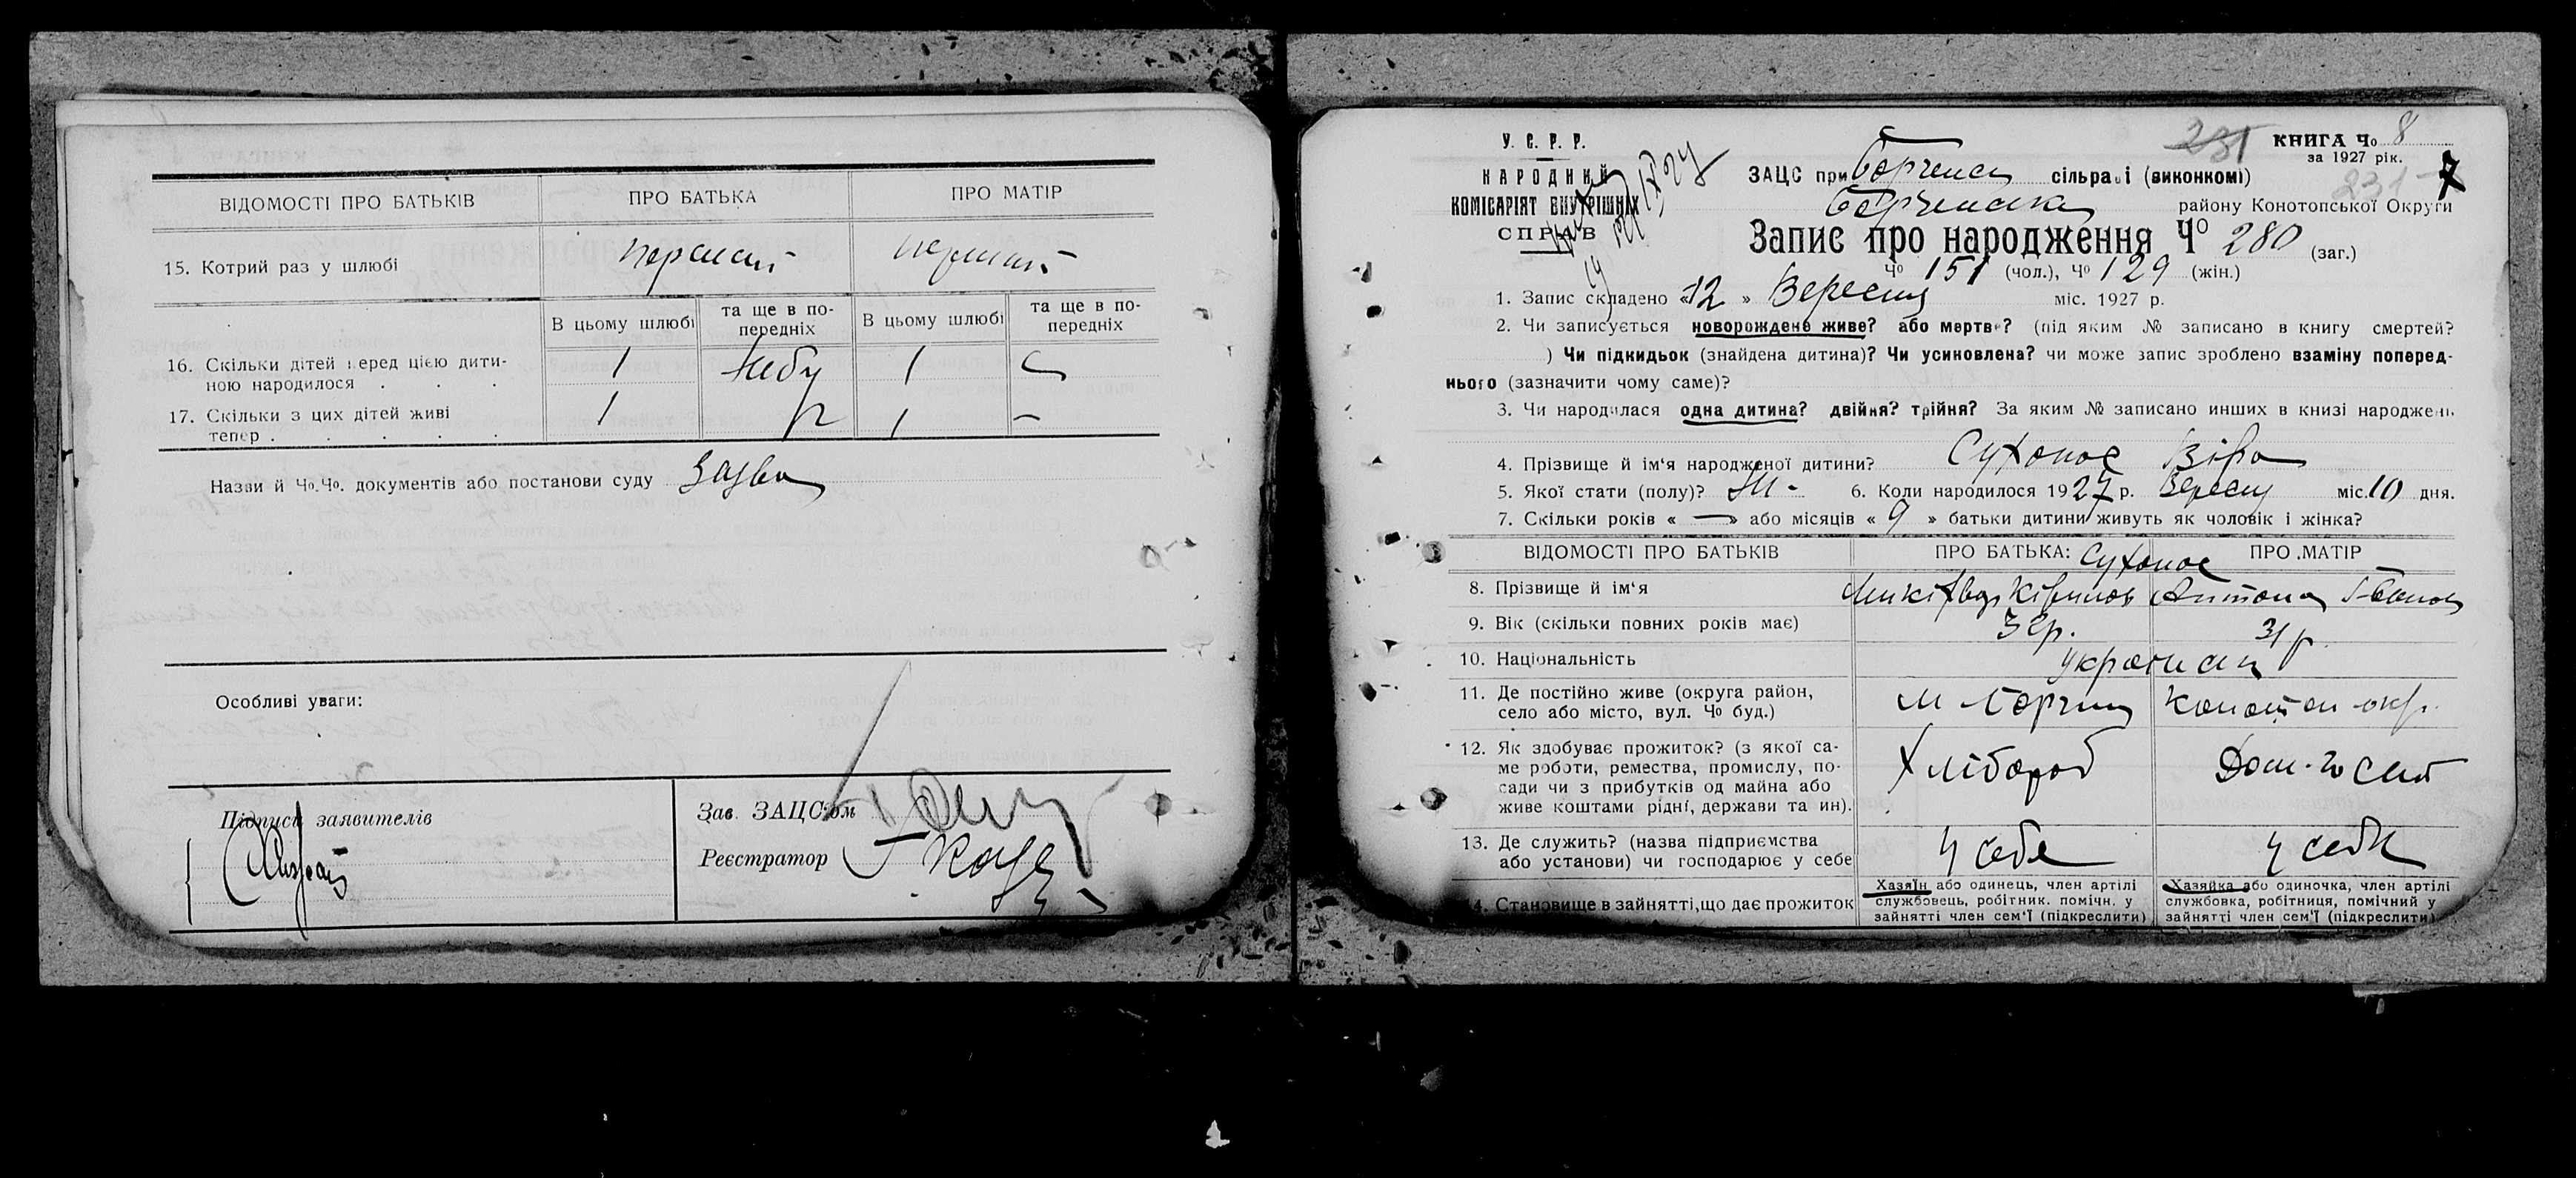 ВІДОМОСТІ ПРО БАТЬКІВ ПРО БАТЬКА ПРО МАТІР
15. Котрий раз у шлюбі перший перший
В цьому шлюбі та ще в по-передніх В цьому шлюбі та ще в по-передніх
16. Скільки дітей перед цією дити-
ною народилося . . . 1 небу 1 —
17. Скільки з цих дітей живі
тепер . . . . . 1 1 —
Назви й Чо.Чо. документів або постанови суду Заява
Особливі уваги:
Підписи заявителів
Зав. ЗАЦС'ом
Реєстратор
231 КНИГА Чо 8
за 1927 рік.
231 7
У. С. Р. Р.
НАРОДНИЙ
КОМІСАРІЯТ ВНУТРІШНІХ
СПРАВ
ЗАЦС при сільраді (виконкомі)
району Конотопської Округи
Запис про народження Чо 280 (заг.)
Чо 151 (чол.), Чо 129 (жін.)
1. Запис складено «12» Вересня міс. 1927 р.
2. Чи записується новорождене живе? або мертве? (під яким № записано в книгу смертей?
) Чи підкидьок (знайдена дитина)? Чи усиновлена? чи може запис зроблено взаміну поперед-
нього (зазначити чому саме)?
3. Чи народилася одна дитина? двійня? трійня? За яким № записано инших в книзі народжень
4. Прізвище й ім'я народженої дитини? Сухонос Віра
5. Якої стати (полу)? Ж - 6. Коли народилося 1927 р. Вересня міс. 10 дня.
7. Скільки років « — » або місяців « 9 » батьки дитини живуть як чоловік і жінка?
ВІДОМОСТІ ПРО БАТЬКІВ ПРО БАТЬКА: ПРО МАТІР
Сухонос
8. Прізвище й ім'я
9. Вік (скільки повних років має) 31 р.
10. Національність
11. Де постійно живе (округа район,
село або місто, вул. Чо буд.) м Конотоп окр.
12. Як здобуває прожиток? (з якої са-
ме роботи, ремества, промислу, по-
сади чи з прибутків од майна або
живе коштами рідні, держави та ин). Хлібороб Дом. госп
13. Де служить? (назва підприємства
або установи) чи господарює у себе у себе у себе
14. Становище в зайнятті, що дає прожиток
Хазяїн або одинець, член артілі
службовець, робітник. помічн. у
зайнятті член сем'ї (підкреслити)
Хазяйка або одиночка, член артілі
службовка, робітниця, помічний у
зайнятті член сем'ї (підкреслити)